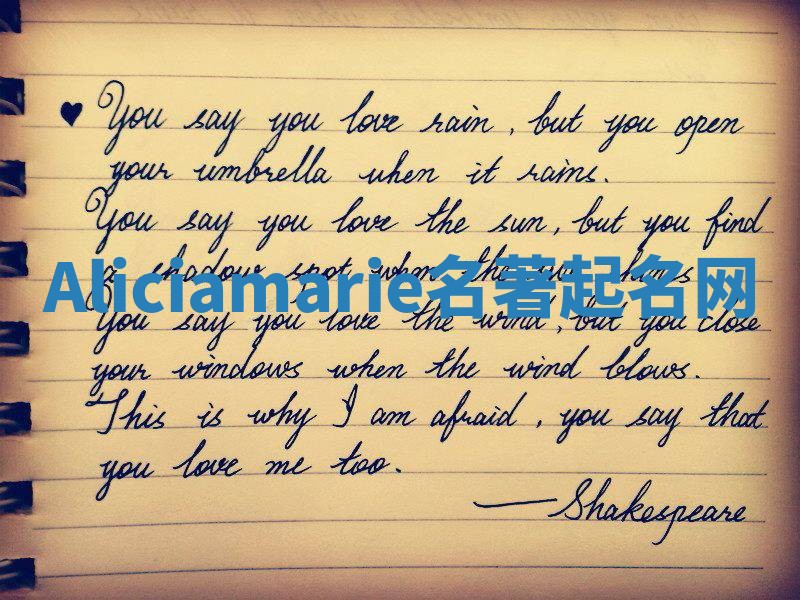 ♥ You say you love rain, but you open
your umbrella when it rains.
You say you love the sun, but you find
a shadow spot when the sun shines
Aliciamarie名著起名网
You say you love the wind, but you close
your windows when the wind blows.
This is why I am afraid, you say that
you love me too.
— Shakespeare